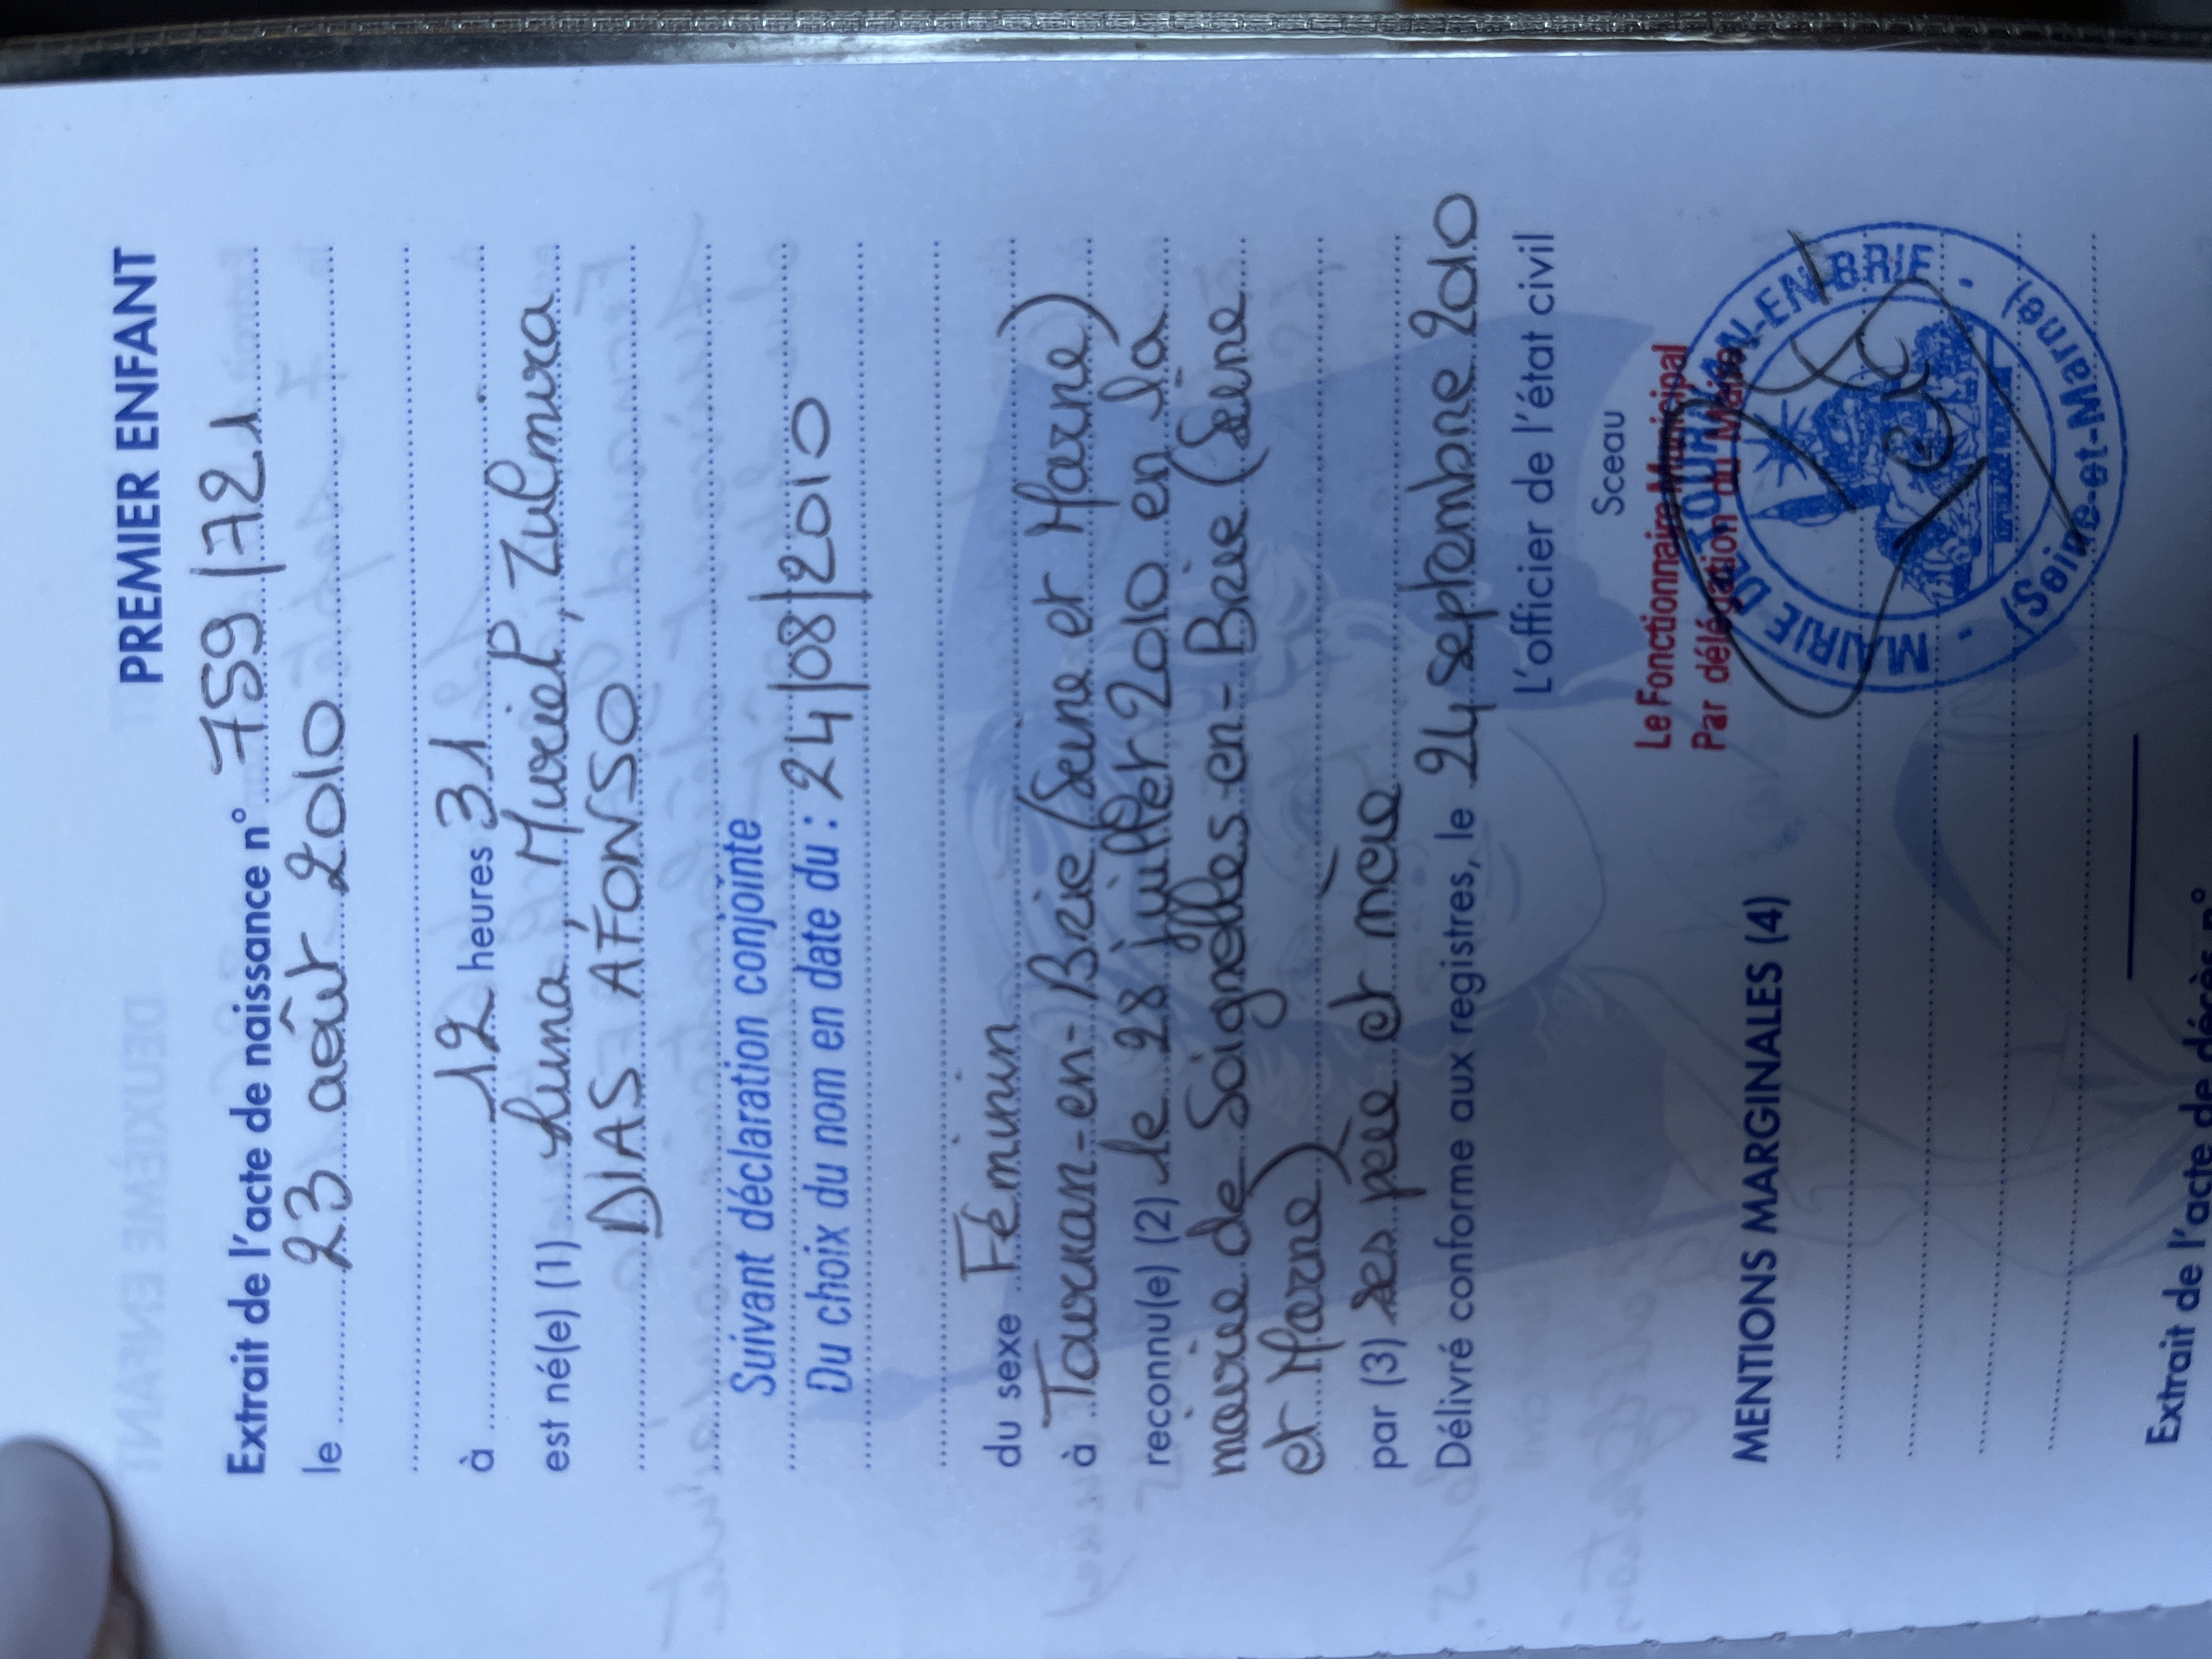 PREMIER ENFANT
Extrait de l'acte de naissance n° 759/721
le 23 août 2010
à 12 heures 31
est né(e) (1) Luna, Muriel, Zulmira
DIAS AFONSO
Suivant déclaration conjointe
Du choix du nom en date du : 24/08/2010
du sexe Féminin
à Tournan-en-Brie (Seine et Marne)
reconnu(e) (2) le 28 juillet 2010 en la
mairie de Soignolles-en-Brie (Seine
et Marne)
par (3) ses père et mère
Délivré conforme aux registres, le 24 septembre 2010
L'officier de l'état civil
Sceau
Le Fonctionnaire Municipal
Par délégation du Maire
MAIRIE DE TOURNAN-EN-BRIE
(Seine-et-Marne)
MENTIONS MARGINALES (4)
Extrait de l'acte de décès n°
DEUXIÈME ENFANT